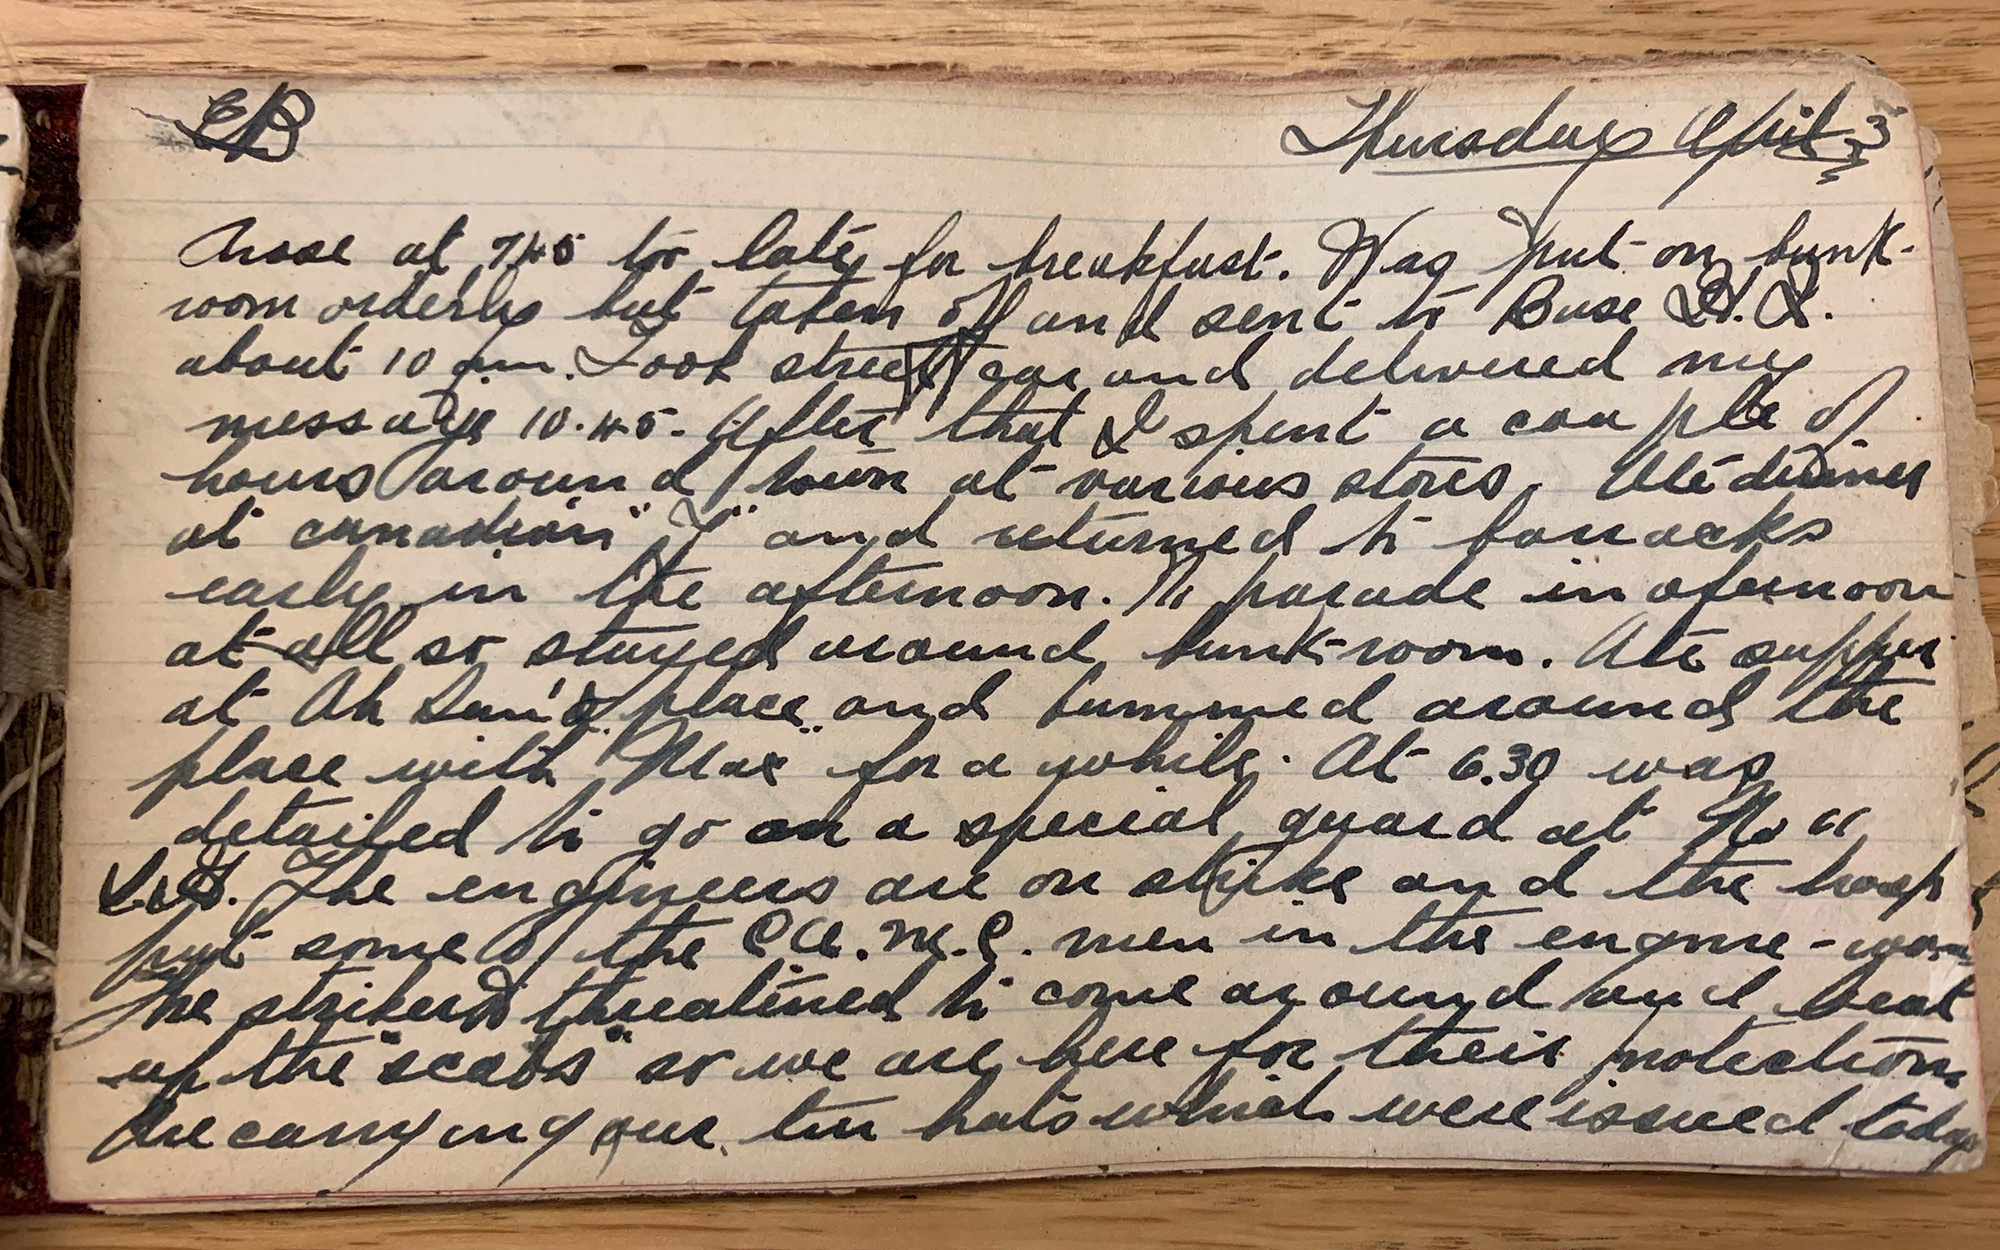 EB
Thursday April 3
Arose at 7.45 to late for breakfast. Was put on bunk-
room orderly but taken off and sent to Base H.Q.
about 10 am. Took street car and delivered my
message 10.45. After that I spent a couple of
hours around town at various stores. Ate dinner
at canadian "Y" and returned to barracks
early in the afternoon. No parade in afernoon
at all so stayed around bunk-room. Ate supper
at Ah Sam's place and bummed around the
place with "Mac" for a while. At 6.30 was
detailed to go on a special guard at No 11
S.H. The engineers are on strike and the troops
put some of the C.A.M.C. men in the engine-room
The strikers threatined to come around and beat
up the "scabs" so we are here for their protection
Are carrying our tin hats which were issued today